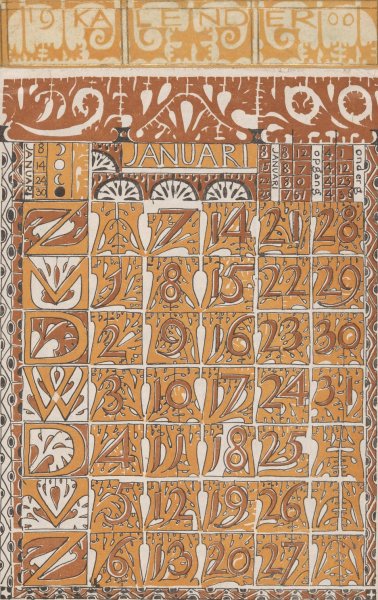 19 KALENDER 00
JANUARI
JANUARI
JANUARI
opgang
ondang
Z 7 14 21 28
M 1 8 15 22 29
D 2 9 16 23 30
W 3 10 17 24 31
D 4 11 18 25
V 5 12 19 26
Z 6 13 20 27